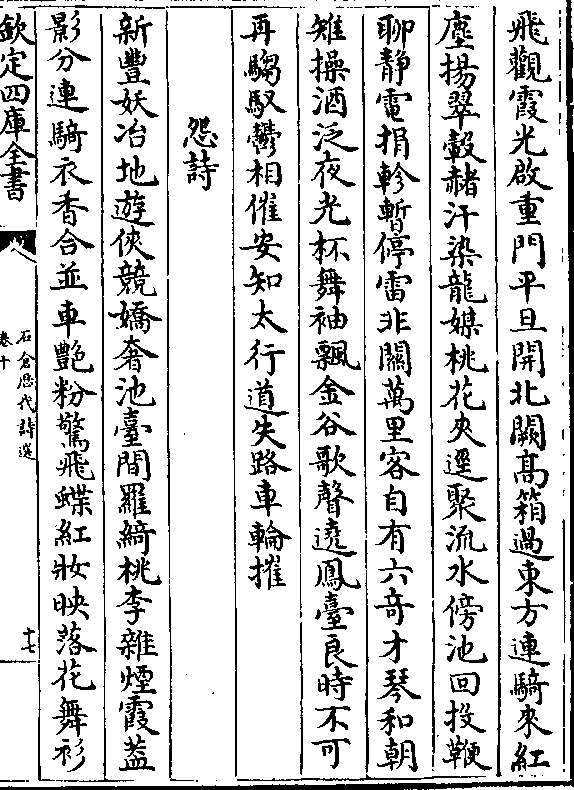 飛觀霞光啟重門平旦開北闕髙箱過東方連騎來紅
塵揚翠轂赭汗染龍媒桃花夾逕聚流水傍池回投鞭
聊靜電捐軫暫停雷非關萬里客自有六竒才琴和朝
雉操酒泛夜光杯舞袖飄金谷歌聲遶鳳臺良時不可
再騶馭鬱相催安知太行道失路車輪摧
怨詩
新豐妖冶地遊俠競嬌奢池臺間羅綺桃李雜煙霞葢
影分連騎衣香合並車艶粉驚飛蝶紅妝映落花舞衫
欽定四庫全書
石倉歴代詩選
卷十
十七